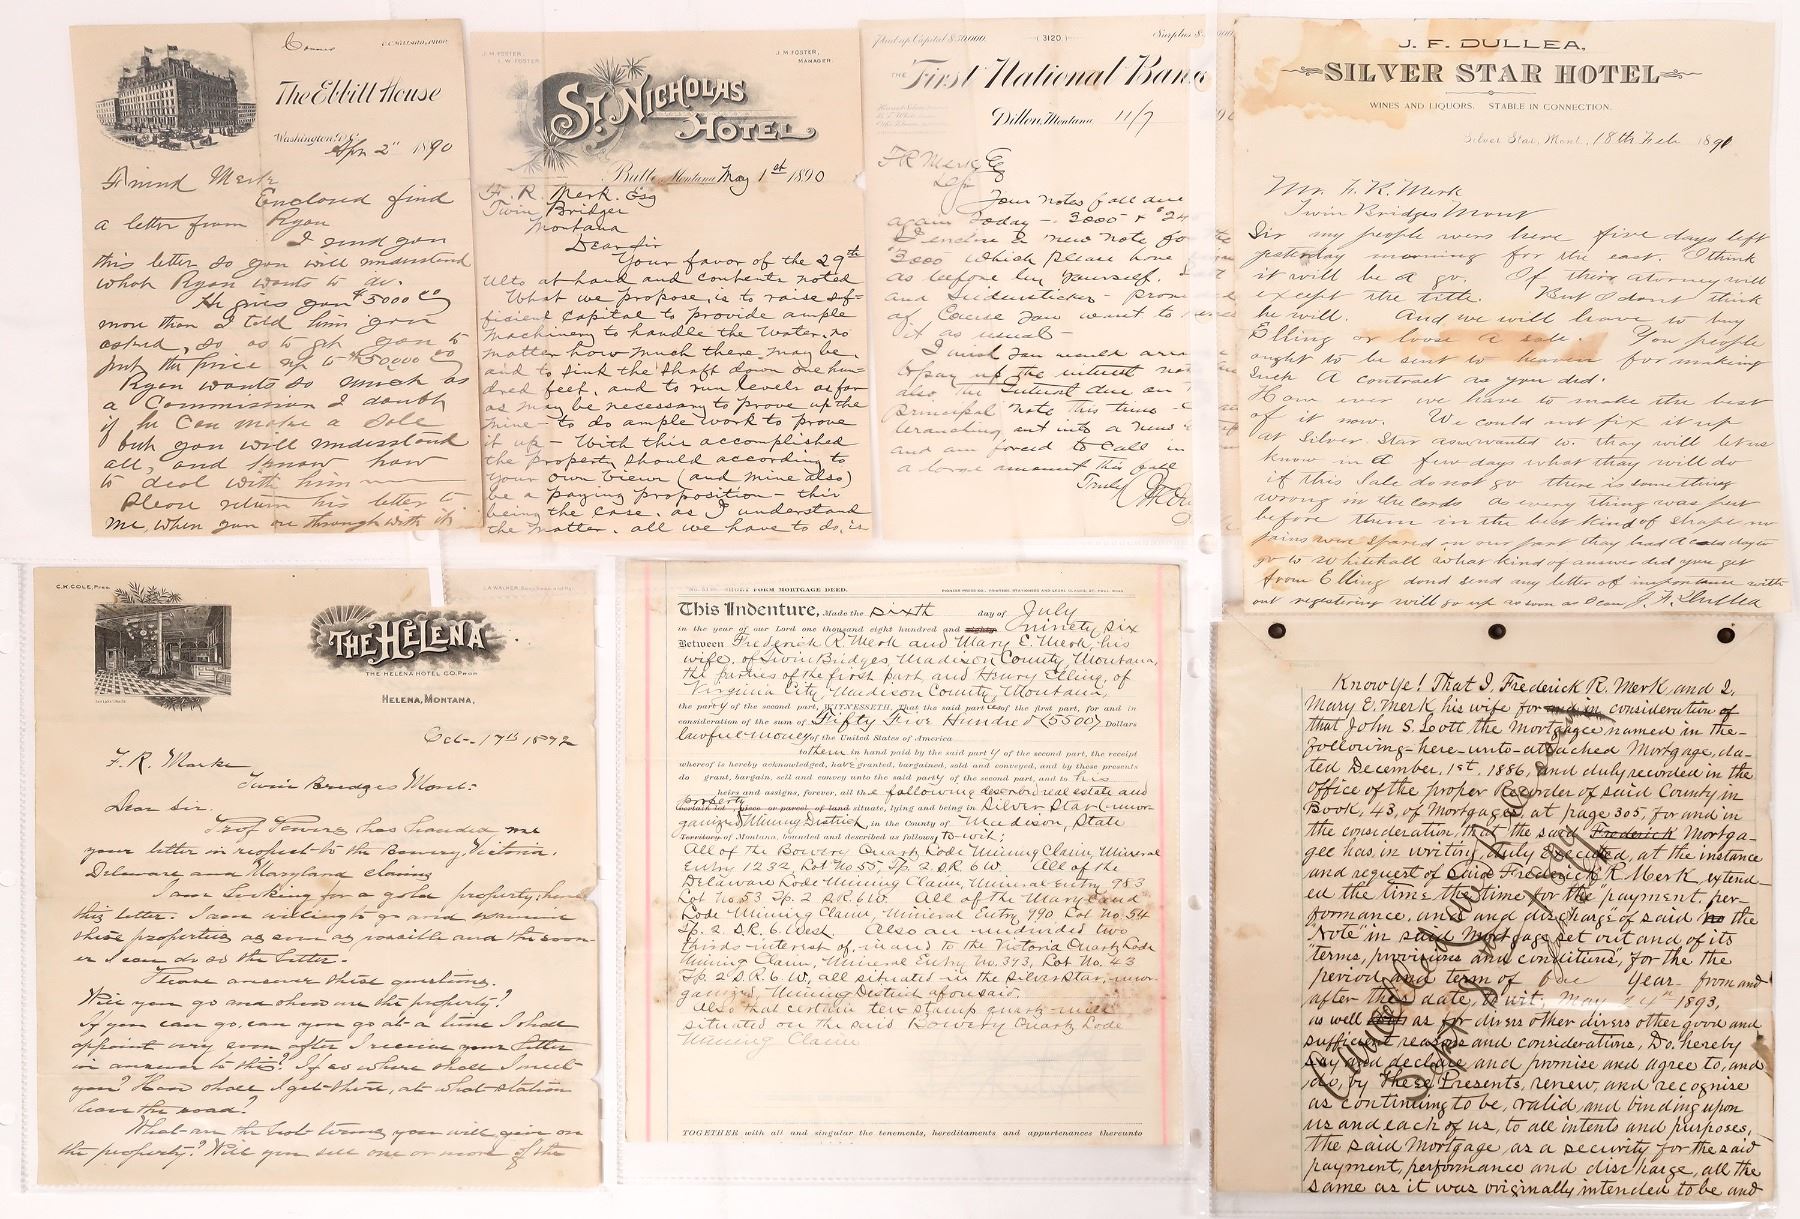 C.C. Willard, Prop.
The Ebbitt House
Washington, D.C.
Apr 2" 1890
Friend Merk
Enclosed find
a letter from Ryan
I send you
this letter so you will understand
what Ryan wants to do.
He gives you $5000 00
more than I told him you
asked, so as to get you to
put the price up to $50000 00
Ryan wants so much as
a Commission I doubt
if he can make a sale
but you will understand
all, and I know how
to deal with him
Please return his letter to
me, when you are through with it
J. M. FOSTER
E. W. FOSTER
J. M. FOSTER,
MANAGER.
ST. NICHOLAS
HOTEL
Butte, Montana May 1st 1890
F. R. Merk. Esq
Twin Bridges
Montana
Dear Sir
Your favor of the 29th
ulto at hand and contents noted
What we propose, is to raise suf-
ficient capital to provide ample
machinery to handle the water, no
matter how much there may be.
and to sink the shaft down one hun-
dred feet, and to run levels as far
as may be necessary to prove up the
mine - to do ample work to prove
it up - With this accomplished
the property should according to
your own view (and mine also)
be a paying proposition - this
being the case, as I understand
the matter, all we have to do, is
Paid up Capital $50,000.
(3120.)
Surplus
THE First National Bank
Dillon, Montana 11/7
F R Merk Esq
Your notes fall due
again today - 3000 & $24
I enclose a new note for
3000 which please have
as before by yourself.
and Seidensticker -
of course you want to
it as usual -
I wish you would
pay up the interest
also the interest due on
principal note this time -
branching out into a new
and am forced to call in
a large amount this fall
Truly
J. F. DULLEA,
SILVER STAR HOTEL
WINES AND LIQUORS. STABLE IN CONNECTION.
Silver Star, Mont., 18th Feb 1891
Mr. F. R. Merk
Twin Bridges Mont
Sir my people were here five days left
yesterday morning for the east. I think
it will be a go. If their attorney will
except the title. But I dont think
he will. And we will have to buy
Elling or loose a sale. You people
ought to be sent to heaven for making
such A contract as you did.
How ever we have to make the best
of it now. We could not fix it up
at Silver Star as we wanted to. thay will let us
know in A few days what thay will do
if this Sale do not go there is something
wrong in the cords as every thing was put
before them in the best kind of shape no
pains were spared on our part thay had A days to
go to Whitehall what kind of answer did you get
from Elling dond send any letter of importance with
out registering will go up as soon as I can J. F. Dullea
C. K. COLE, Pres.
L. A. WALKER, Secy, Treas. and Mgr.
THE HELENA
THE HELENA HOTEL CO. PROP.
HELENA, MONTANA,
Oct- 17th 1892
F. R. Marke
Twin Bridges Mont-
Dear Sir.
Prof Towers has handed me
your letter in respect to the Bowery, Victoria,
Delaware and Maryland claims
I am looking for a gold property, hence
this letter. I am willing to go and examine
these properties as soon as possible and the soon-
er I can do so the better.
Please answer these questions.
Will you go and show me the property?
If you can go, can you go at a time I shall
appoint very soon after I receive your letter
in answer to this? If so where shall I meet
you? How shall I get there, at what station
leave the road?
What are the best terms you will give on
the property? Will you sell one or more of the
SHORT FORM MORTGAGE DEED.
PIONEER PRESS CO., PRINTING, STATIONERS AND LEGAL BLANKS, ST. PAUL, MINN.
This Indenture, Made the sixth day of July
in the year of our Lord one thousand eight hundred and eighty ninety six
Between Frederick R. Merk and Mary E. Merk, his
wife, of Twin Bridges, Madison County, Montana,
the parties of the first part and Henry Elling, of
Virginia City, Madison County, Montana,
the party of the second part, WITNESSETH, That the said parties of the first part, for and in
consideration of the sum of Fifty Five Hundred (5500) Dollars
lawful money of the United States of America
to them in hand paid by the said party of the second part, the receipt
whereof is hereby acknowledged, have granted, bargained, sold and conveyed, and by these presents
do grant, bargain, sell and convey unto the said party of the second part, and to his
heirs and assigns, forever, all the following described real estate and
property
certain lot, piece or parcel of land situate, lying and being in Silver Star (unor-
ganized) Mining District, in the County of Madison, State
Territory of Montana, bounded and described as follows, to-wit;
All of the Bowery Quartz Lode Mining Claim, Mineral
Entry 1232, Lot No 55, Tp. 2 S. R. 6 W. All of the
Delaware Lode Mining Claim, Mineral Entry, 983
Lot No 53 Tp. 2 S. R. 6 W. All of the Maryland
Lode Mining Claim, Mineral Entry, 990 Lot No. 54
Tp. 2. S. R. 6. West. Also an undivided two
thirds interest of, in and to the Victoria Quartz Lode
Mining Claim, Mineral Entry No. 373, Lot No. 43
Tp. 2 S. R. 6. W, all situated in the Silver Star, unor-
ganized, Mining District aforesaid.
Also that certain ten stamp quartz mill
situated on the said Bowery Quartz Lode
Mining Claim
TOGETHER with all and singular the tenements, hereditaments and appurtenances thereunto
Know Ye! That I, Frederick R. Merk and I,
Mary E. Merk his wife for and in consideration of
that John S. Lott, the Mortgagee named in the-
following-here-unto-attached Mortgage, da-
ted December, 1st, 1886, and duly recorded in the
office of the proper Recorder of said County in
Book, 43, of Mortgages, at page 305, for and in
the consideration, that the said Frederick Mortga-
gee has, in writing, duly executed, at the instance
and request of said Frederick R Merk, extend-
ed the time the time for the "payment, per-
formance, and and discharge of said no the
"Note" in said Mortgage set out and of its
"terms, provisions and conditions, for the the
period and term of One Year from and
after this date, to wit, May 24th 1893,
as well as for divers other divers other good and
sufficient reasons and considerations, Do, hereby
say and declare and promise and agree to, and
do, by These Presents, renew, and recognise
as continuing to be, valid, and binding upon
us and each of us, to all intents and purposes,
the said Mortgage as a security for the said
payment, performance and discharge, all the
same as it was originally intended to be and